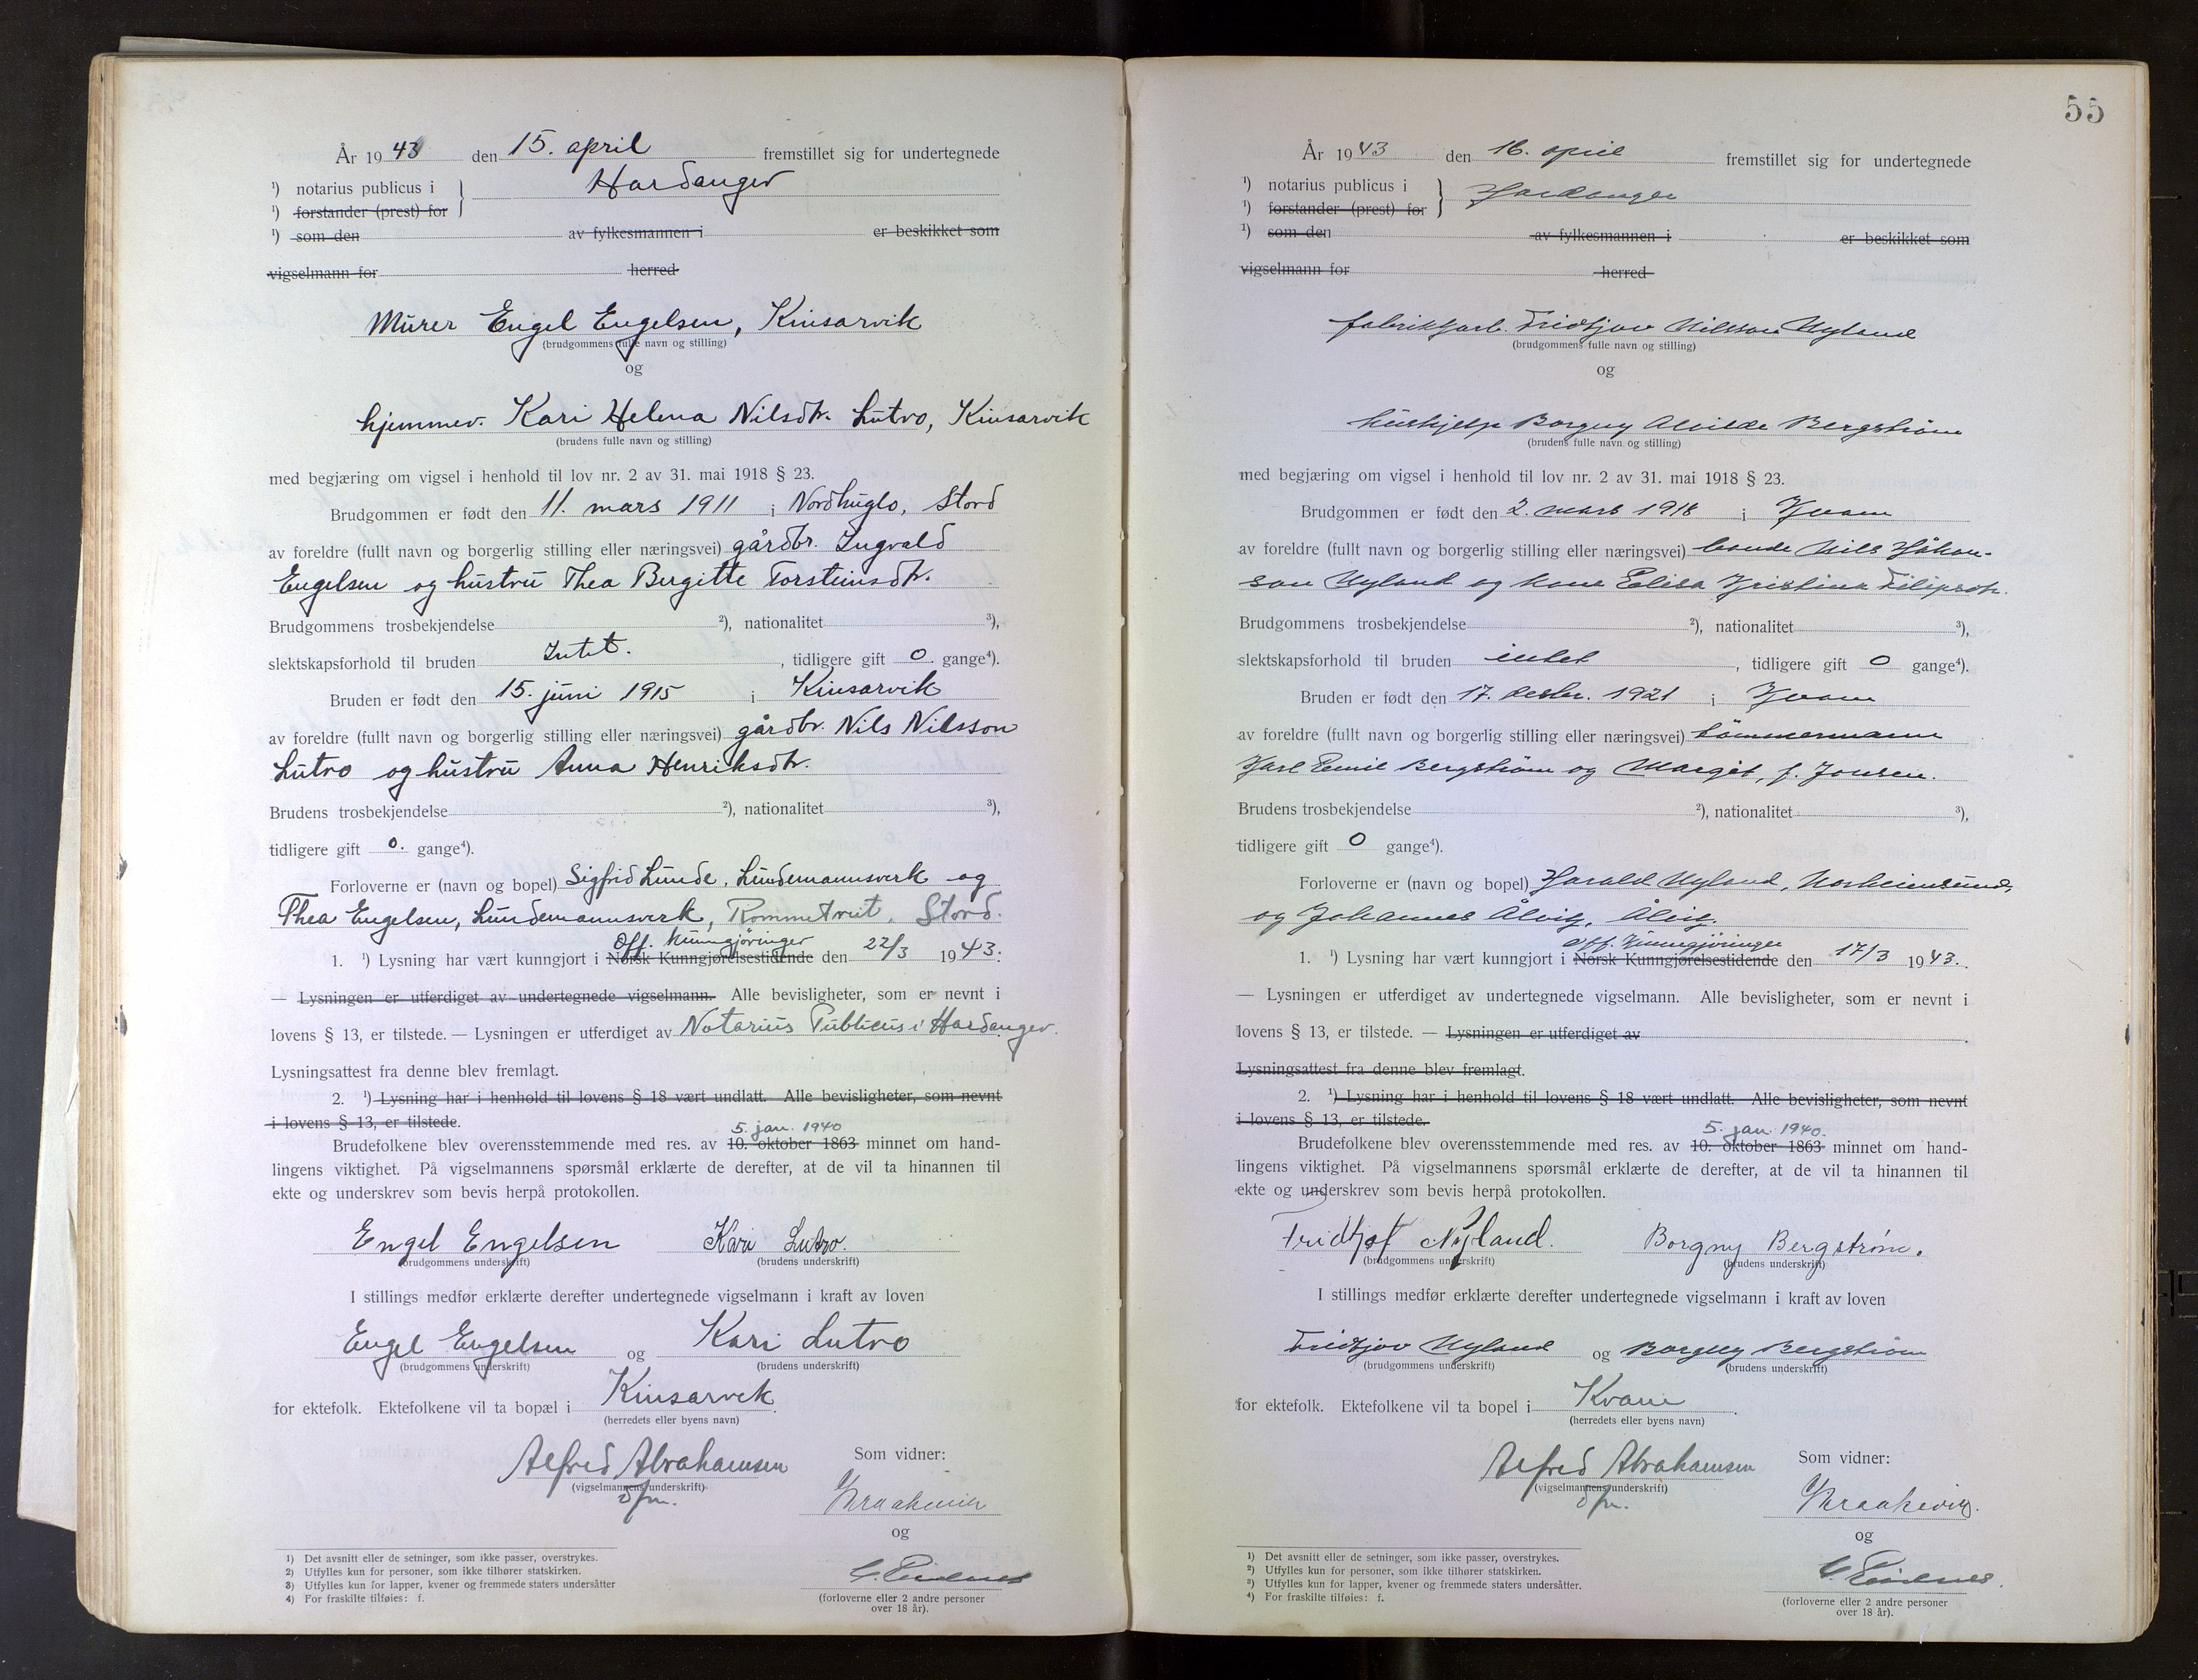 År 1943 den 15. april fremstillet sig for undertegnede
¹) notarius publicus i } Hardanger
¹) forstander (prest) for
¹) som den av fylkesmannen i er beskikket som
vigselmann for herred
Murer Engel Engelsen, Kinsarvik
(brudgommens fulle navn og stilling)
og
hjemmev. Kari Helena Nilsdtr. Lutro, Kinsarvik
(brudens fulle navn og stilling)
med begjæring om vigsel i henhold til lov nr. 2 av 31. mai 1918 § 23.
Brudgommen er født den 11. mars 1911 i Nordhuglo, Stord
av foreldre (fullt navn og borgerlig stilling eller næringsvei) gårdbr. Ingvald
Engelsen og hustru Thea Bergitte Torsteinsdtr.
Brudgommens trosbekjendelse ²), nationalitet ³),
slektskapsforhold til bruden Intet. , tidligere gift 0 gange⁴).
Bruden er født den 15. juni 1915 i Kinsarvik
av foreldre (fullt navn og borgerlig stilling eller næringsvei) gårdbr. Nils Nilsson
Lutro og hustru Anna Henriksdtr.
Brudens trosbekjendelse ²), nationalitet ³),
tidligere gift 0. gange⁴).
Forloverne er (navn og bopel) Sigfrid Lunde, Lundemannsverk og
Thea Engelsen, Lundemannsverk, Rommetveit, Stord.
Off. kunngjøringer
1. ¹) Lysning har vært kunngjort i Norsk Kunngjørelsestidende den 22/3 1943.
— Lysningen er utferdiget av undertegnede vigselmann. Alle bevisligheter, som er nevnt i
lovens § 13, er tilstede. — Lysningen er utferdiget av Notarius Publicus i Hardanger.
Lysningsattest fra denne blev fremlagt.
2. ¹) Lysning har i henhold til lovens § 18 vært undlatt. Alle bevisligheter, som nevnt
i lovens § 13, er tilstede.
5. jan. 1940
Brudefolkene blev overensstemmende med res. av 10. oktober 1863 minnet om hand-
lingens viktighet. På vigselmannens spørsmål erklærte de derefter, at de vil ta hinannen til
ekte og underskrev som bevis herpå protokollen.
Engel Engelsen Kari Lutro.
(brudgommens underskrift) (brudens underskrift)
I stillings medfør erklærte derefter undertegnede vigselmann i kraft av loven
Engel Engelsen og Kari Lutro
(brudgommens underskrift) (brudens underskrift)
for ektefolk. Ektefolkene vil ta bopæl i Kinsarvik.
(herredets eller byens navn)
Alfred Abrahamsen Som vidner:
(vigselmannens underskrift)
dfm.
og
(forloverne eller 2 andre personer
over 18 år).
1) Det avsnitt eller de setninger, som ikke passer, overstrykes.
2) Utfylles kun for personer, som ikke tilhører statskirken.
3) Utfylles kun for lapper, kvener og fremmede staters undersåtter
4) For fraskilte tilføies: f.
55
År 1943 den 16. april fremstillet sig for undertegnede
¹) notarius publicus i } Hardanger
¹) forstander (prest) for
¹) som den av fylkesmannen i er beskikket som
vigselmann for herred
fabrikkarb. Fridtjov Nilsson Nyland
(brudgommens fulle navn og stilling)
og
hushjelp Borgny Alvilde Bergstrøm
(brudens fulle navn og stilling)
med begjæring om vigsel i henhold til lov nr. 2 av 31. mai 1918 § 23.
Brudgommen er født den 2. mars 1918 i Kvam
av foreldre (fullt navn og borgerlig stilling eller næringsvei) bonde Nils Håkon-
son Nyland og kone Elisa Kristina Filipsdtr.
Brudgommens trosbekjendelse ²), nationalitet ³),
slektskapsforhold til bruden intet , tidligere gift 0 gange⁴).
Bruden er født den 17. desbr. 1921 i Kvam
av foreldre (fullt navn og borgerlig stilling eller næringsvei) tømmermann
Karl Emil Bergstrøm og Margit, f. Jonsen.
Brudens trosbekjendelse ²), nationalitet ³),
tidligere gift 0 gange⁴).
Forloverne er (navn og bopel) Harald Nyland, Norheimsund,
og Johannes Ålvig, Ålvig.
Off. Kunngjøringer
1. ¹) Lysning har vært kunngjort i Norsk Kunngjørelsestidende den 17/3 1943.
— Lysningen er utferdiget av undertegnede vigselmann. Alle bevisligheter, som er nevnt i
lovens § 13, er tilstede. — Lysningen er utferdiget av
Lysningsattest fra denne blev fremlagt.
2. ¹) Lysning har i henhold til lovens § 18 vært undlatt. Alle bevisligheter, som nevnt
i lovens § 13, er tilstede.
5. jan. 1940.
Brudefolkene blev overensstemmende med res. av 10. oktober 1863 minnet om hand-
lingens viktighet. På vigselmannens spørsmål erklærte de derefter, at de vil ta hinannen til
ekte og underskrev som bevis herpå protokollen.
Fridtjof Nyland. Borgny Bergstrøm.
(brudgommens underskrift) (brudens underskrift)
I stillings medfør erklærte derefter undertegnede vigselmann i kraft av loven
Fridtjov Nyland og Borgny Bergstrøm
(brudgommens underskrift) (brudens underskrift)
for ektefolk. Ektefolkene vil ta bopel i Kvam.
(herredets eller byens navn)
Alfred Abrahamsen Som vidner:
(vigselmannens underskrift)
dfm.
og
(forloverne eller 2 andre personer
over 18 år).
1) Det avsnitt eller de setninger, som ikke passer, overstrykes.
2) Utfylles kun for personer, som ikke tilhører statskirken.
3) Utfylles kun for lapper, kvener og fremmede staters undersåtter.
4) For fraskilte tilføies: f.